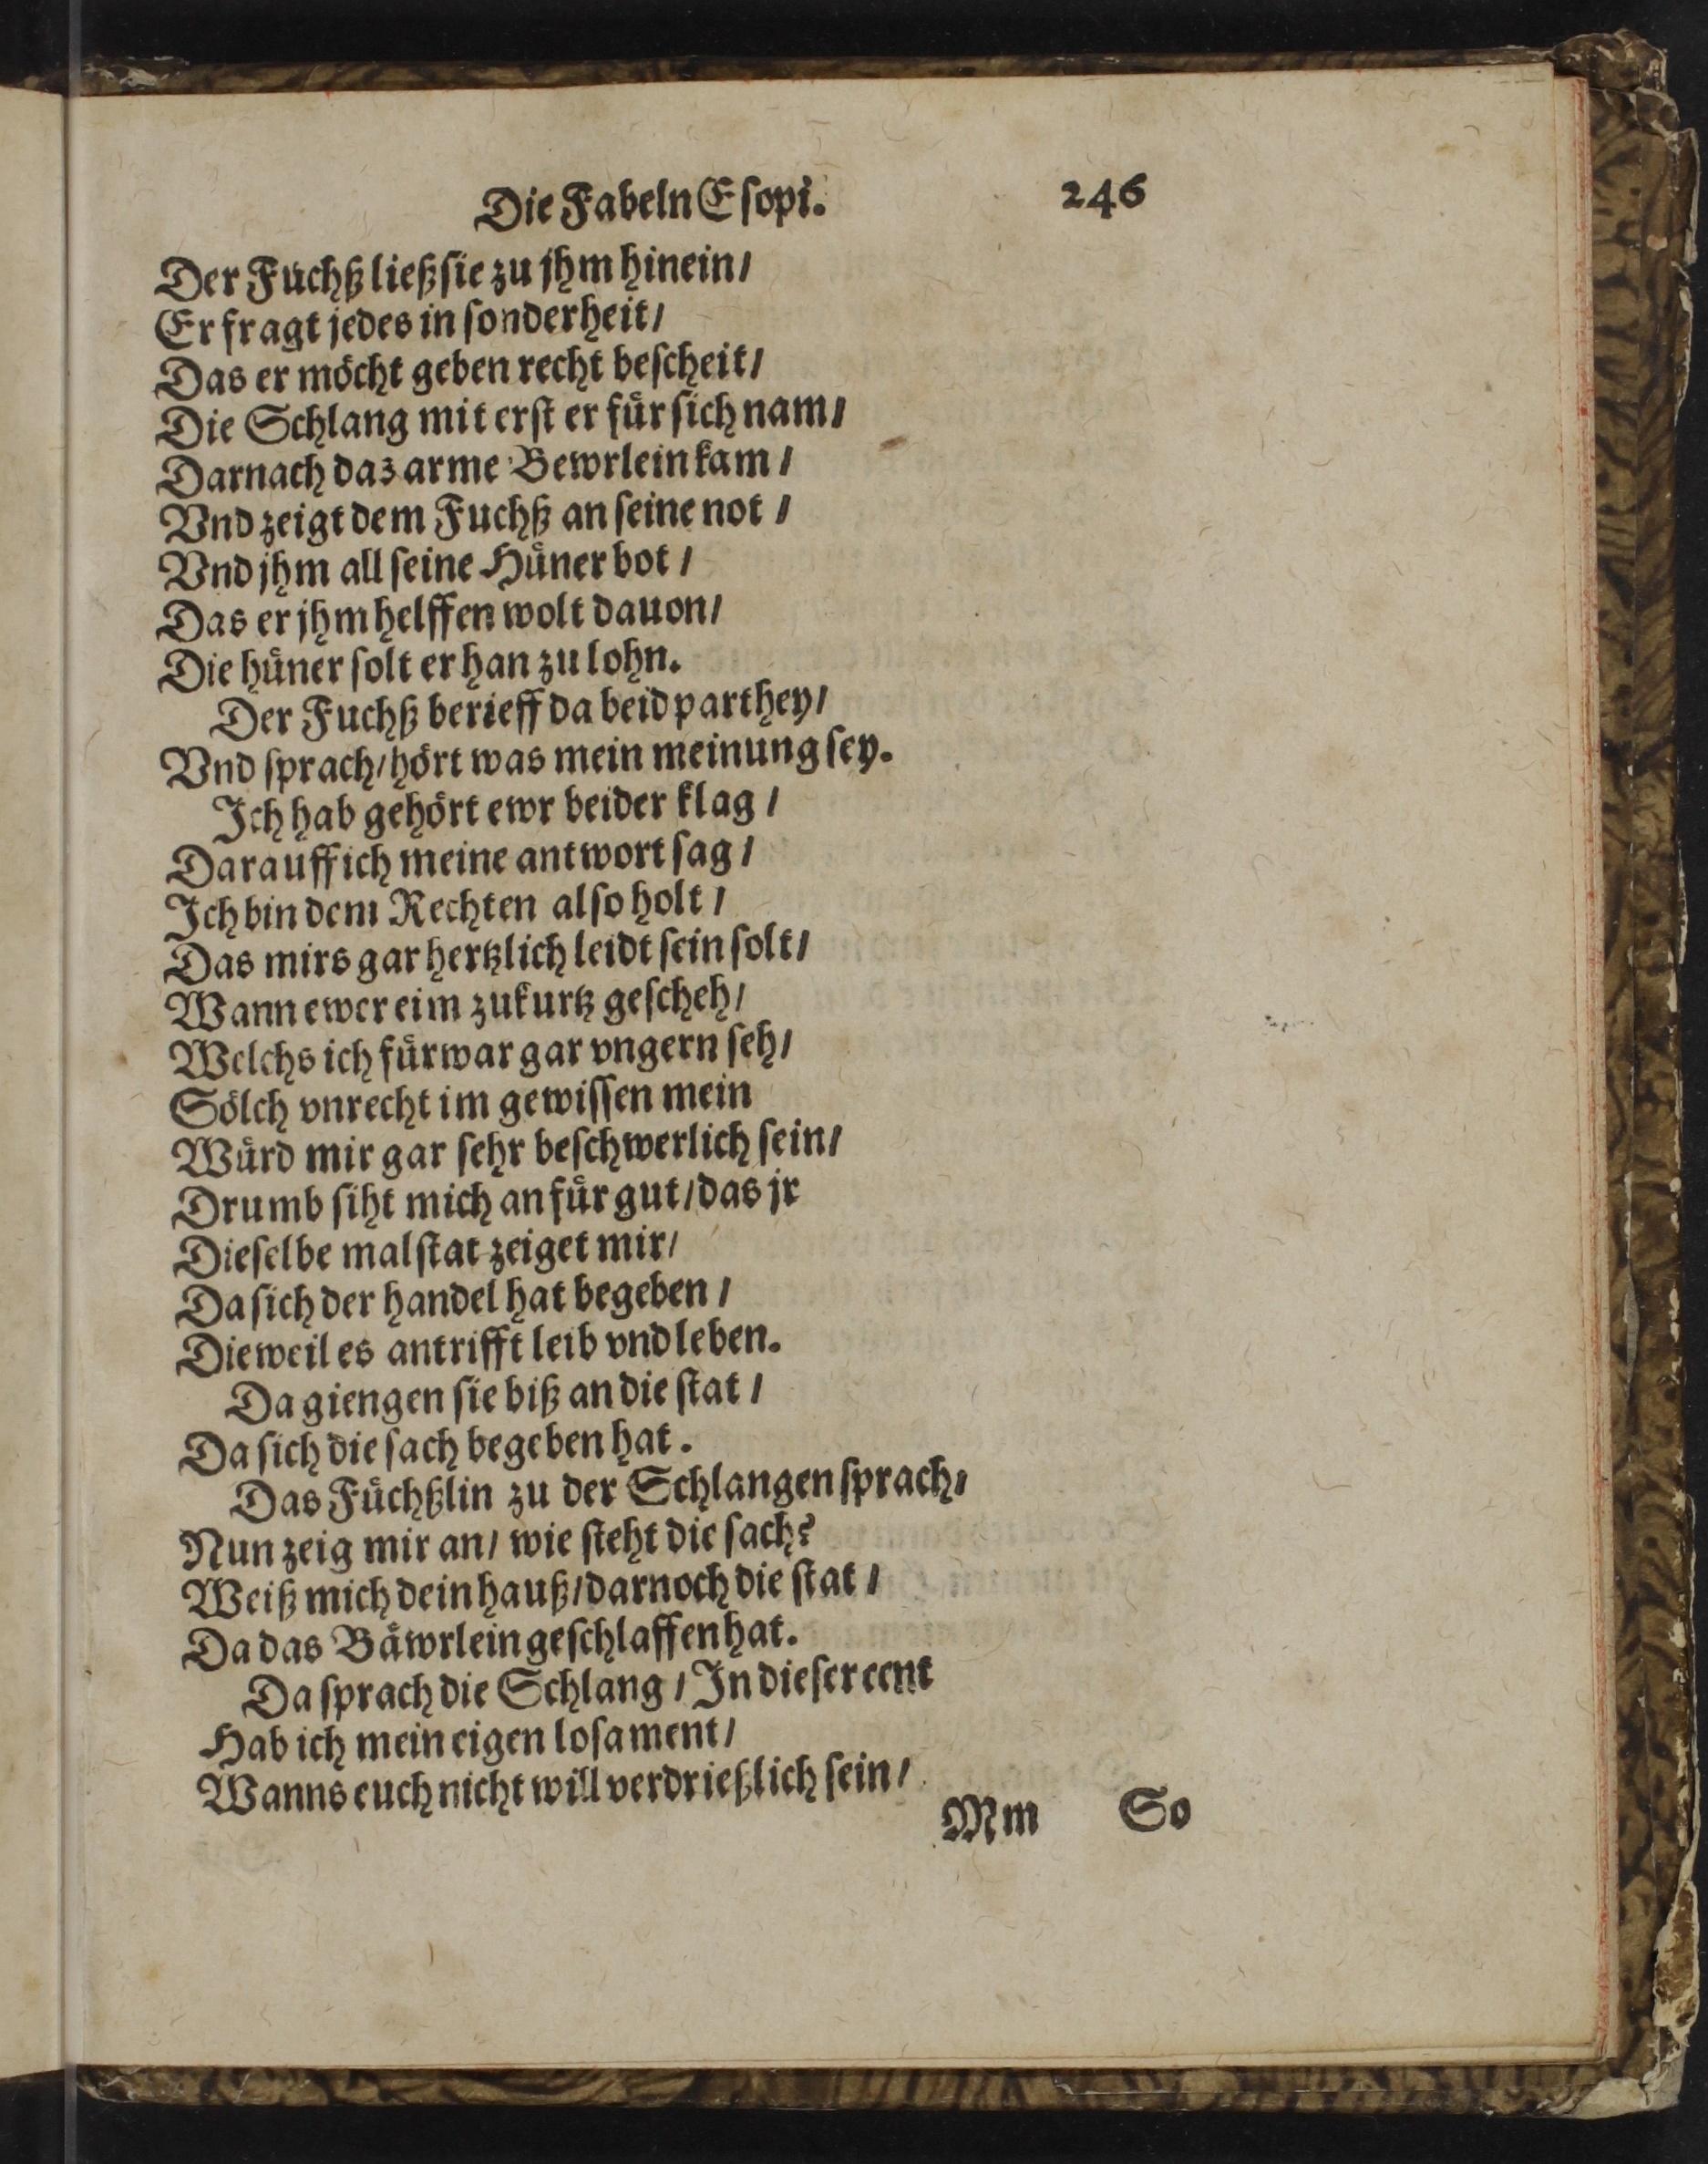 Die Fabeln Esopi. 246
Der Fuchß ließ sie zu jhm hinein/
Er fragt jedes in sonderheit/
Das er möcht geben recht bescheit/
Die Schlang mit erst er für sich nam/
Darnach daz arme Bewrlein kam/
Vnd zeigt dem Fuchß an seine not/
Vnd jhm all seine Hüner bot/
Das er jhm helffen wolt dauon/
Die hüner solt er han zu lohn.
Der Fuchß berieff da beid parthey/
Vnd sprach/ hört was mein meinung sey.
Ich hab gehört ewr beider klag/
Darauff ich meine antwort sag/
Ich bin dem Rechten also holt/
Das mirs gar hertzlich leidt sein solt/
Wann ewer eim zukurtz gescheh/
Welchs ich fürwar gar vngern seh/
Sölch vnrecht im gewissen mein
Würd mir gar sehr beschwerlich sein/
Drumb siht mich an für gut/ das jr
Dieselbe malstat zeiget mir/
Da sich der handel hat begeben/
Dieweil es antrifft leib vnd leben.
Da giengen sie biß an die stat/
Da sich die sach begeben hat.
Das Füchßlin zu der Schlangen sprach/
Nun zeig mir an/ wie steht die sach?
Weiß mich dein hauß/ darnoch die stat/
Da das Bäwrlein geschlaffen hat.
Da sprach die Schlang/ In dieser eent
Hab ich mein eigen losament/
Wanns euch nicht will verdrießlich sein/
Mm So